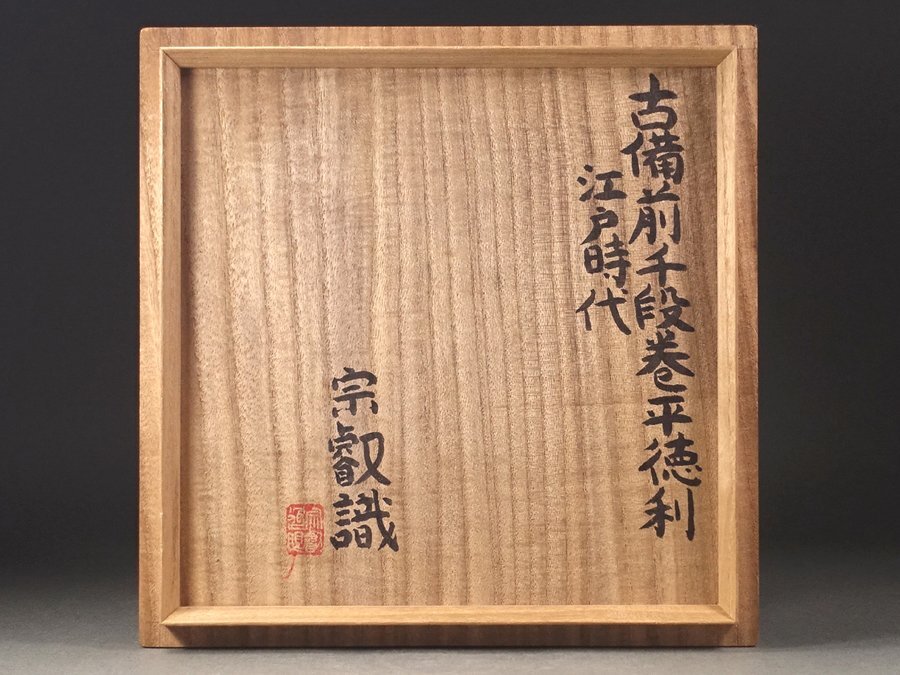 古備前千段巻平徳利
江戸時代
宗叡識